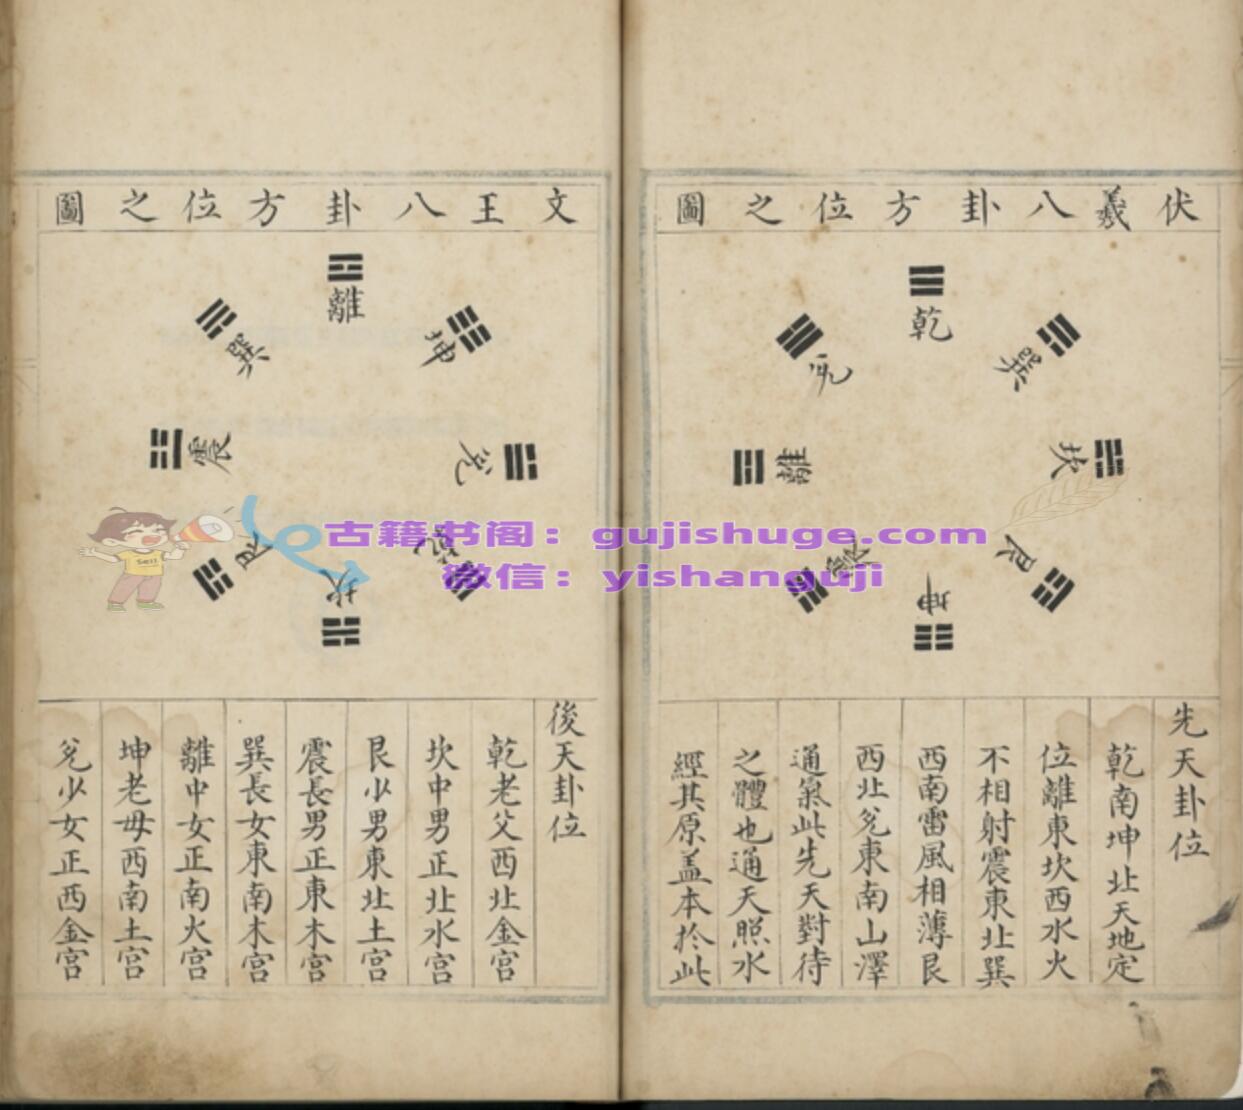 伏羲八卦方位之圖
乾
兌
巽
離
坎
震
艮
坤
先天卦位
乾南坤北天地定
位離東坎西水火
不相射震東北巽
西南雷風相薄艮
西北兌東南山澤
通氣此先天對待
之體也通天照水
經其原盖本於此
文王八卦方位之圖
離
巽
坤
震
兌
艮
坎
乾
後天卦位
乾老父西北金宮
坎中男正北水宮
艮少男東北土宮
震長男正東木宮
巽長女東南木宮
離中女正南火宮
坤老母西南土宮
兌少女正西金宮
古籍书阁：gujishuge.com
微信：yishanguji
Sell